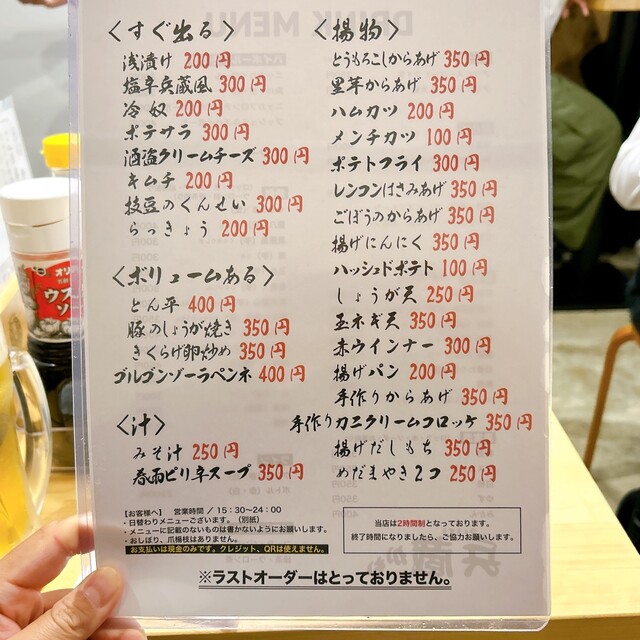 〈すぐ出る〉
浅漬け 200円
塩辛兵蔵風 300円
冷奴 200円
ポテサラ 300円
酒盗クリームチーズ 300円
キムチ 200円
枝豆のくんせい 300円
らっきょう 200円
〈ボリュームある〉
とん平 400円
豚のしょうが焼き 350円
きくらげ卵炒め 350円
ゴルゴンゾーラペンネ 400円
〈汁〉
みそ汁 250円
春雨ピリ辛スープ 350円
〈揚物〉
とうもろこしからあげ 350円
里芋からあげ 350円
ハムカツ 200円
メンチカツ 100円
ポテトフライ 300円
レンコンはさみあげ 350円
ごぼうのからあげ 350円
揚げにんにく 350円
ハッシュドポテト 100円
しょうが天 250円
玉ネギ天 350円
赤ウインナー 300円
揚げパン 200円
手作りからあげ 350円
手作りカニクリームコロッケ 350円
揚げだしもち 350円
めだまやき2コ 250円
【お客様へ】 営業時間／15：30〜24：00
・日替わりメニューございます。（別紙）
・メニューに記載のないものは書かないようにお願いします。
・おしぼり、爪楊枝はありません。
お支払いは現金のみです。クレジット、QRは使えません。
当店は2時間制となっております。
終了時間になりましたら、ご協力お願いします。
※ラストオーダーはとっておりません。
DRINK MENU